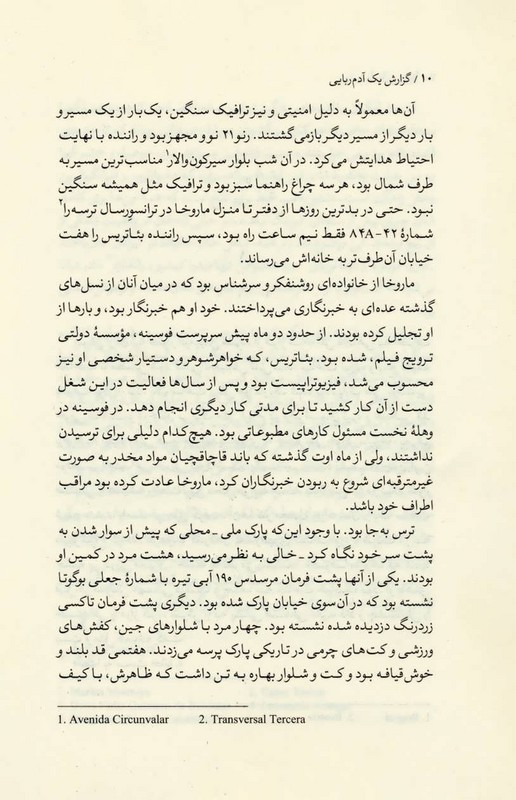 ۱۰ / گزارش یک آدم‌ربایی
آن‌ها معمولاً به دلیل امنیتی و نیز ترافیک سنگین، یک‌بار از یک مسیر و
بار دیگر از مسیر دیگر بازمی‌گشتند. رنو ۲۱ نو و مجهز بود و راننده با نهایت
احتیاط هدایتش می‌کرد. در آن شب بلوار سیرکون‌والار۱ مناسب‌ترین مسیر به
طرف شمال بود، هر سه چراغ راهنما سبز بود و ترافیک مثل همیشه سنگین
نبود. حتی در بدترین روزها از دفتر تا منزل ماروخا در ترانسورسال ترسه‌را۲
شمارهٔ ۴۲-۸۴A فقط نیم ساعت راه بود، سپس راننده بئاتریس را هفت
خیابان آن‌طرف‌تر به خانه‌اش می‌رساند.
ماروخا از خانواده‌ای روشنفکر و سرشناس بود که در میان آنان از نسل‌های
گذشته عده‌ای به خبرنگاری می‌پرداختند. خود او هم خبرنگار بود، و بارها از
او تجلیل کرده بودند. از حدود دو ماه پیش سرپرست فوسینه، مؤسسهٔ دولتی
ترویج فیلم، شده بود. بئاتریس، که خواهرشوهر و دستیار شخصی او نیز
محسوب می‌شد، فیزیوتراپیست بود و پس از سال‌ها فعالیت در این شغل
دست از آن کار کشید تا برای مدتی کار دیگری انجام دهد. در فوسینه در
وهلهٔ نخست مسئول کارهای مطبوعاتی بود. هیچ‌کدام دلیلی برای ترسیدن
نداشتند، ولی از ماه اوت گذشته که باند قاچاقچیان مواد مخدر به صورت
غیرمترقبه‌ای شروع به ربودن خبرنگاران کرد، ماروخا عادت کرده بود مراقب
اطراف خود باشد.
ترس به‌جا بود. با وجود این‌که پارک ملی ـ محلی که پیش از سوار شدن به
پشت سر خود نگاه کرد ـ خالی به نظر می‌رسید، هشت مرد در کمین او
بودند. یکی از آنها پشت فرمان مرسدس ۱۹۰ آبی تیره با شمارهٔ جعلی بوگوتا
نشسته بود که در آن‌سوی خیابان پارک شده بود. دیگری پشت فرمان تاکسی
زردرنگ دزدیده شده نشسته بود. چهار مرد با شلوارهای جین، کفش‌های
ورزشی و کت‌های چرمی در تاریکی پارک پرسه می‌زدند. هفتمی قد بلند و
خوش‌قیافه بود و کت و شلوار بهاره به تن داشت که ظاهرش، با کیف
1. Avenida Circunvalar 2. Transversal Tercera